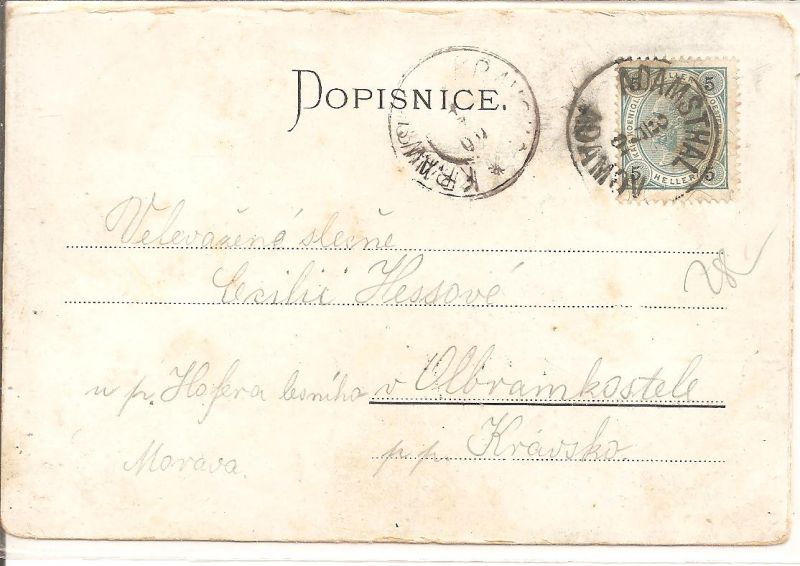 DOPISNICE.
ADAMSTHAL
ADAMOV
5 HELLER 5
5 HELLER 5
Velevážené slečně
Cezilii Hessové
u p. Hofera lesního v Olbramkostele
p. p. Krávsko.
Morava.
28